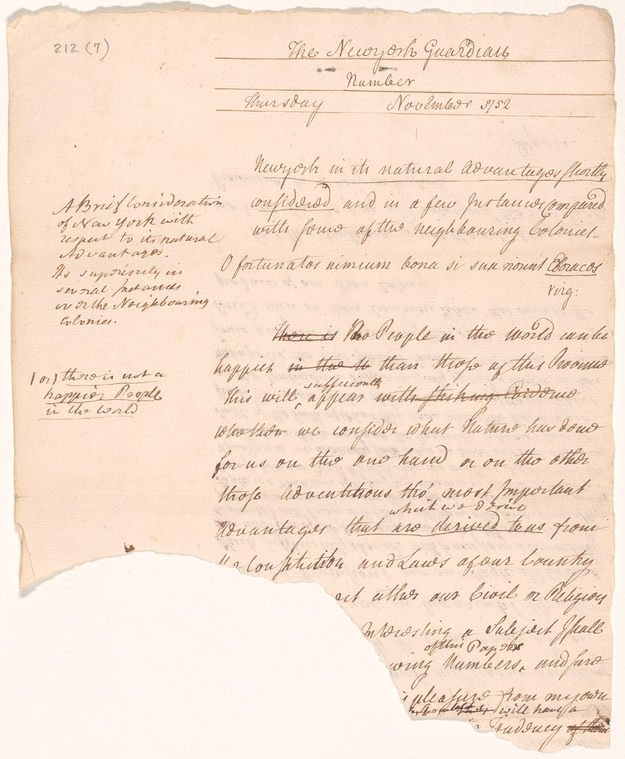 212 (7)
The Newyork Guardian
Number
Thursday November 1752
Newyork in its natural Advantages shortly
considered and in a few Instances Compared
with some of the neighbouring Colonies
O fortunatos nimium bona si sua norint Eboracos
Virg:
A Brief Consideration
of New York with
respect to its natural
Advantages.
Its superiority in
several Instances
over the Neighbouring
Colonies.
There is No People in the world can be
happier in the than those of this Province
(or) there is not a
happier People
in the world
sufficiently
This will, appear with striking Evidence
whether we consider what Nature has done
for us on the one hand or on the other
those Adventitious tho' most Important
what we derive
Advantages that are derived to us from
Constitution and Laws of our Country
either our Civil or Religion
Interesting a Subject I shall
of this Paper
Numbers, and fare
pleasure from my own
will have a
Tendency of